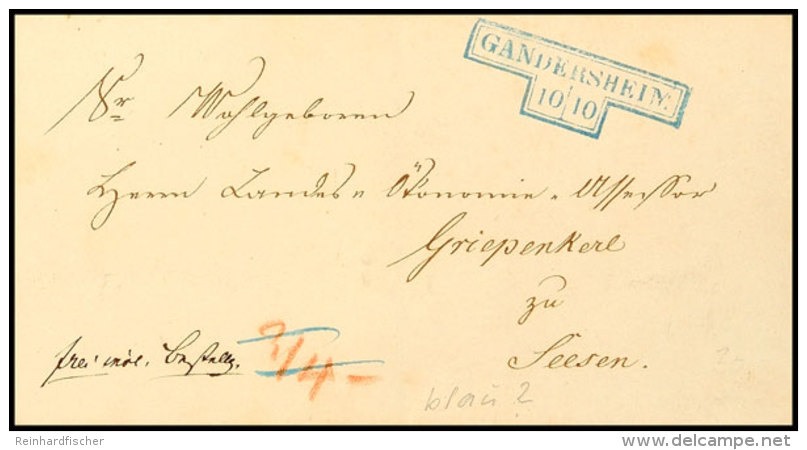 GANDERSHEIM.
10 10
Sr Wohlgeboren
Herrn Landes = Ökonomie = Assessor
Griepenkerl
zu
Seesen.
frei incl. Bestellg.
3/4 -
blau?
Reinhardfischer
delcampe.net